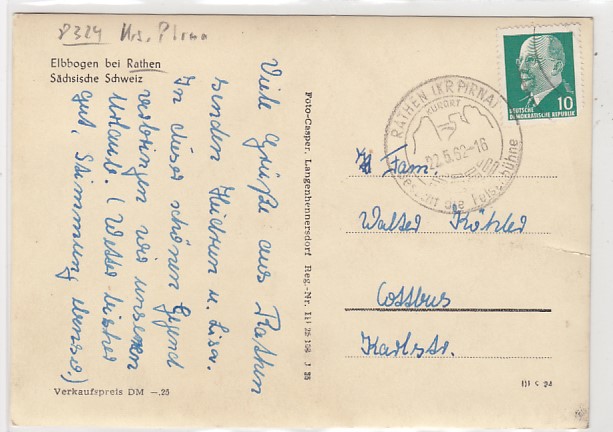 8324 Krs. Pirna
Elbbogen bei Rathen
Sächsische Schweiz
Viele Grüße aus Rathen
senden Heidrun u. Lisa.
In dieser schönen Gegend
verbringen wir unseren
Urlaub. (Wetter bisher
gut, Stimmung ebenso.)
Verkaufspreis DM —.25
Foto-Casper, Langenhennersdorf Reg.-Nr. III 25 J 25
RATHEN (KR PIRNA)
KURORT
22.5.62-16
die Felsenbühne
DEUTSCHE
DEMOKRATISCHE REPUBLIK
10
Fam.
Walter Köhler
Cottbus
Karlstr.